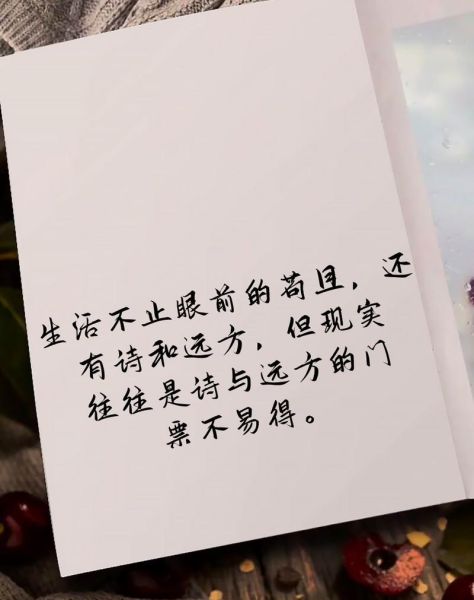 生活不止眼前的苟且，还
有诗和远方，但现实
往往是诗与远方的门
票不易得。